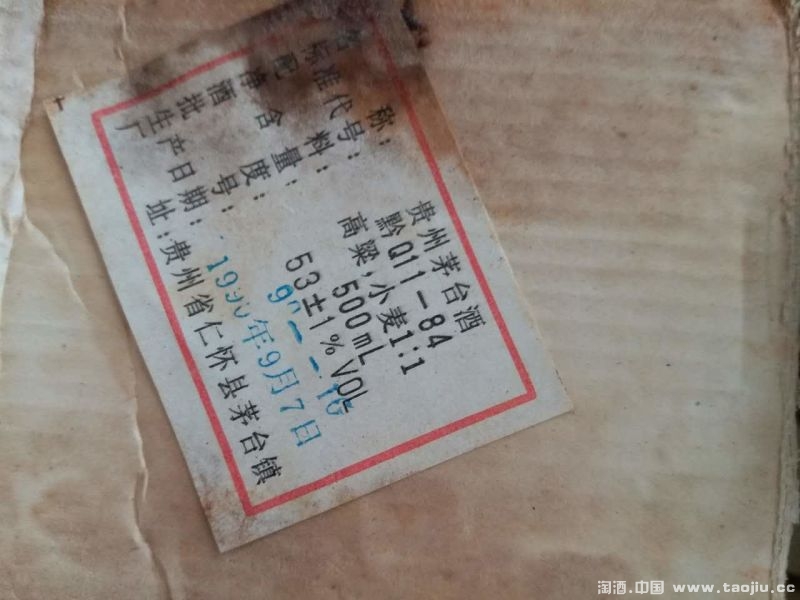 称：贵州茅台酒
标准代号：黔Q11－84
配料：高粱，小麦1:1
净含量：500mL
酒度：53±1%VOL
批号：
生产日期：1990年9月7日
厂址：贵州省仁怀县茅台镇
淘酒.中国 www.taojiu.cc